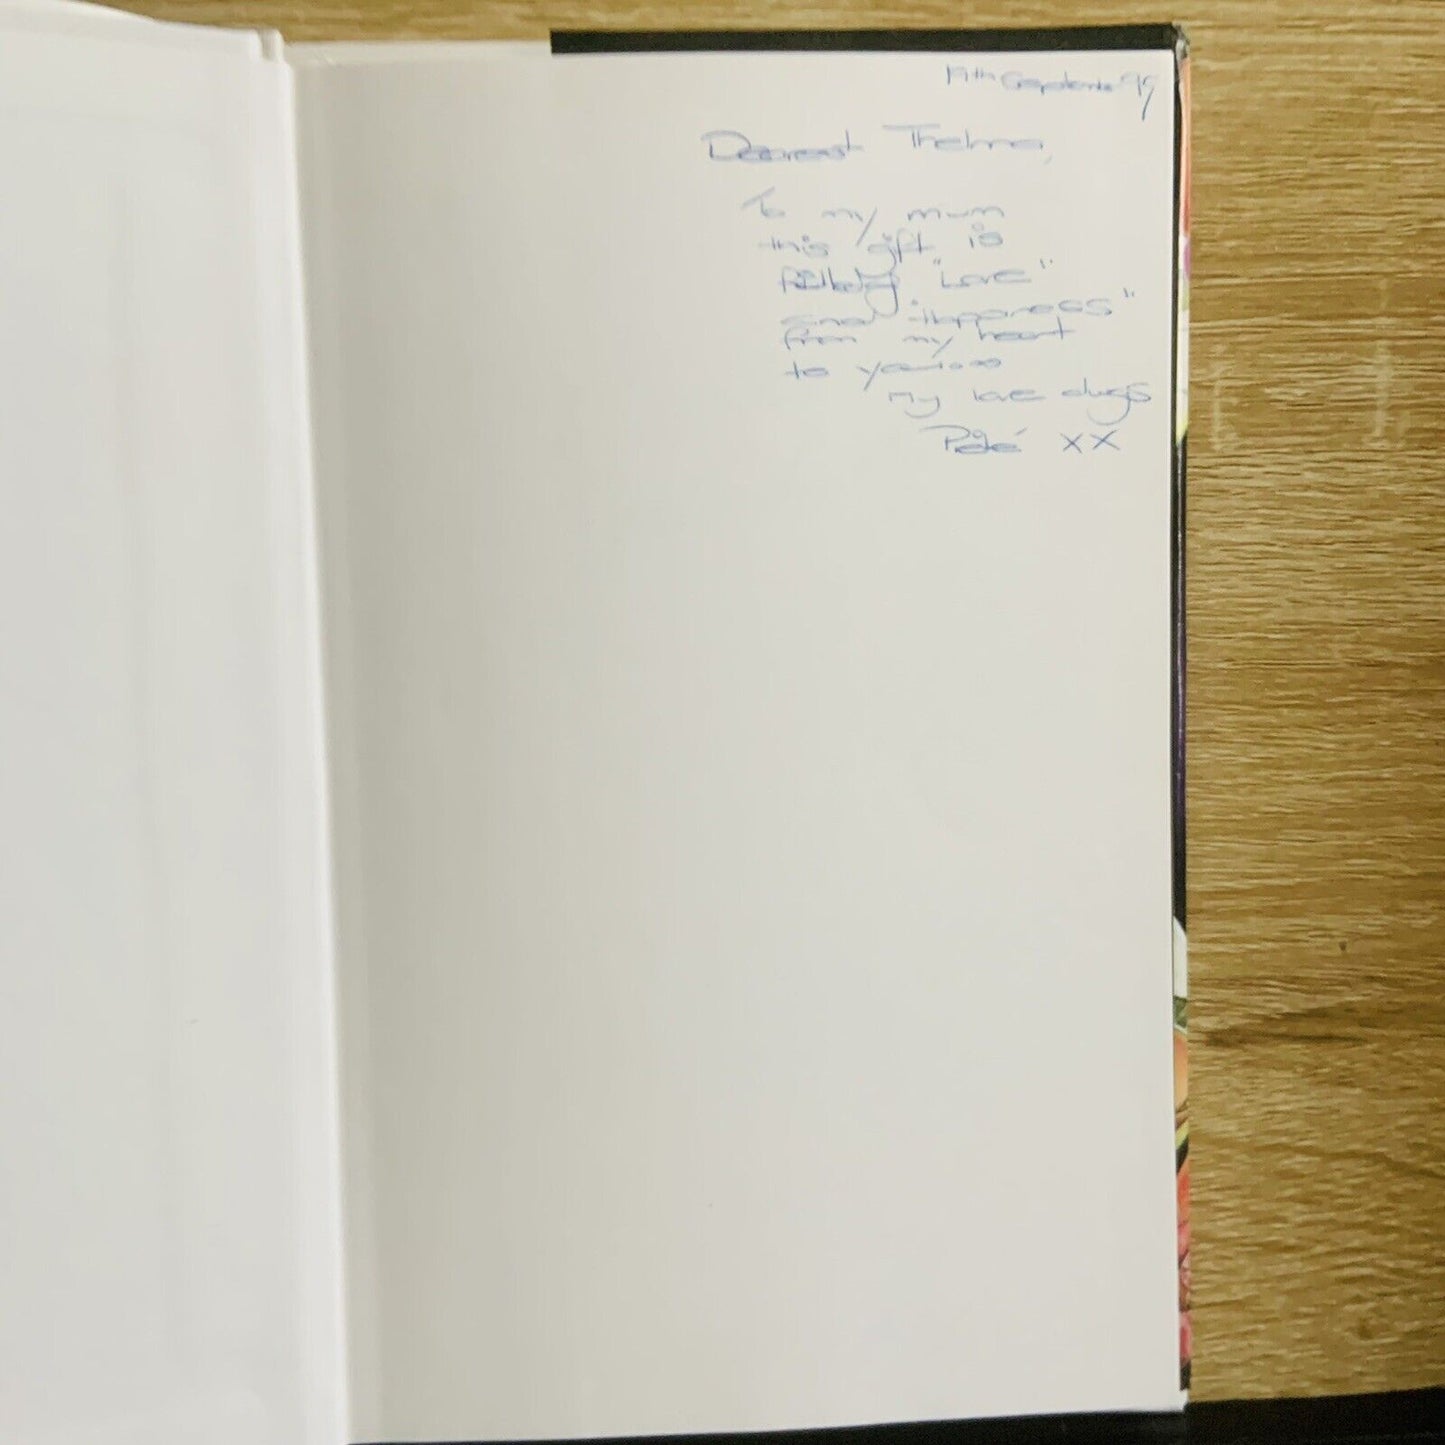 19th September 97
Dearest Thelma,
To my mum
this gift is
"Love"
and "Happiness"
from my heart
to yours
my love always
xx